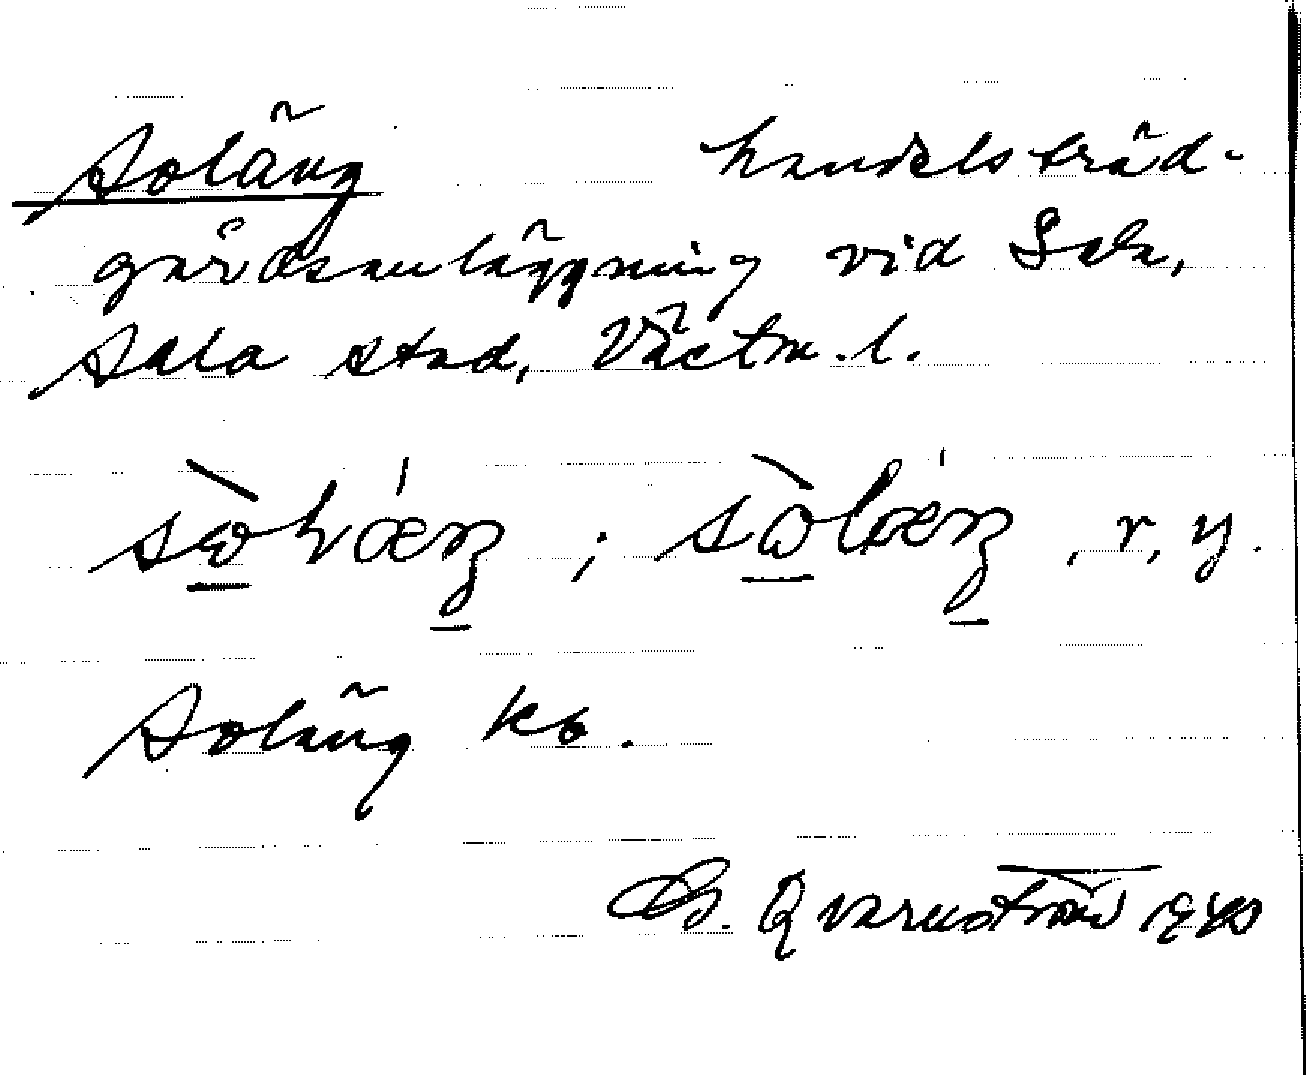 Soläng handelsträd-
gårdsanläggning vid Sala,
Sala stad, Västm. l.
, r, y.
Soläng ko.
G. Qvarnström 1940